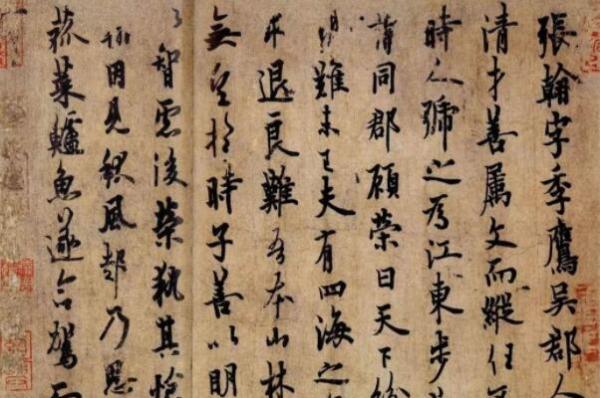 張翰字季鷹吳郡人
清才善屬文而縱任不
時人號之為江東步兵
謂同郡顧榮曰天下紛
難未已夫有四海之
求退良難吾本山林
無望於時子善以明
以智慮後榮執其愴
翰因見秋風起乃思
菰菜鱸魚遂命駕而